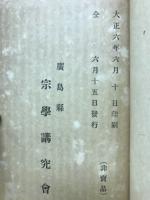 大正六年六月 十日印刷
仝 六月十五日發行
(非賣品)
廣島縣
宗學講究會